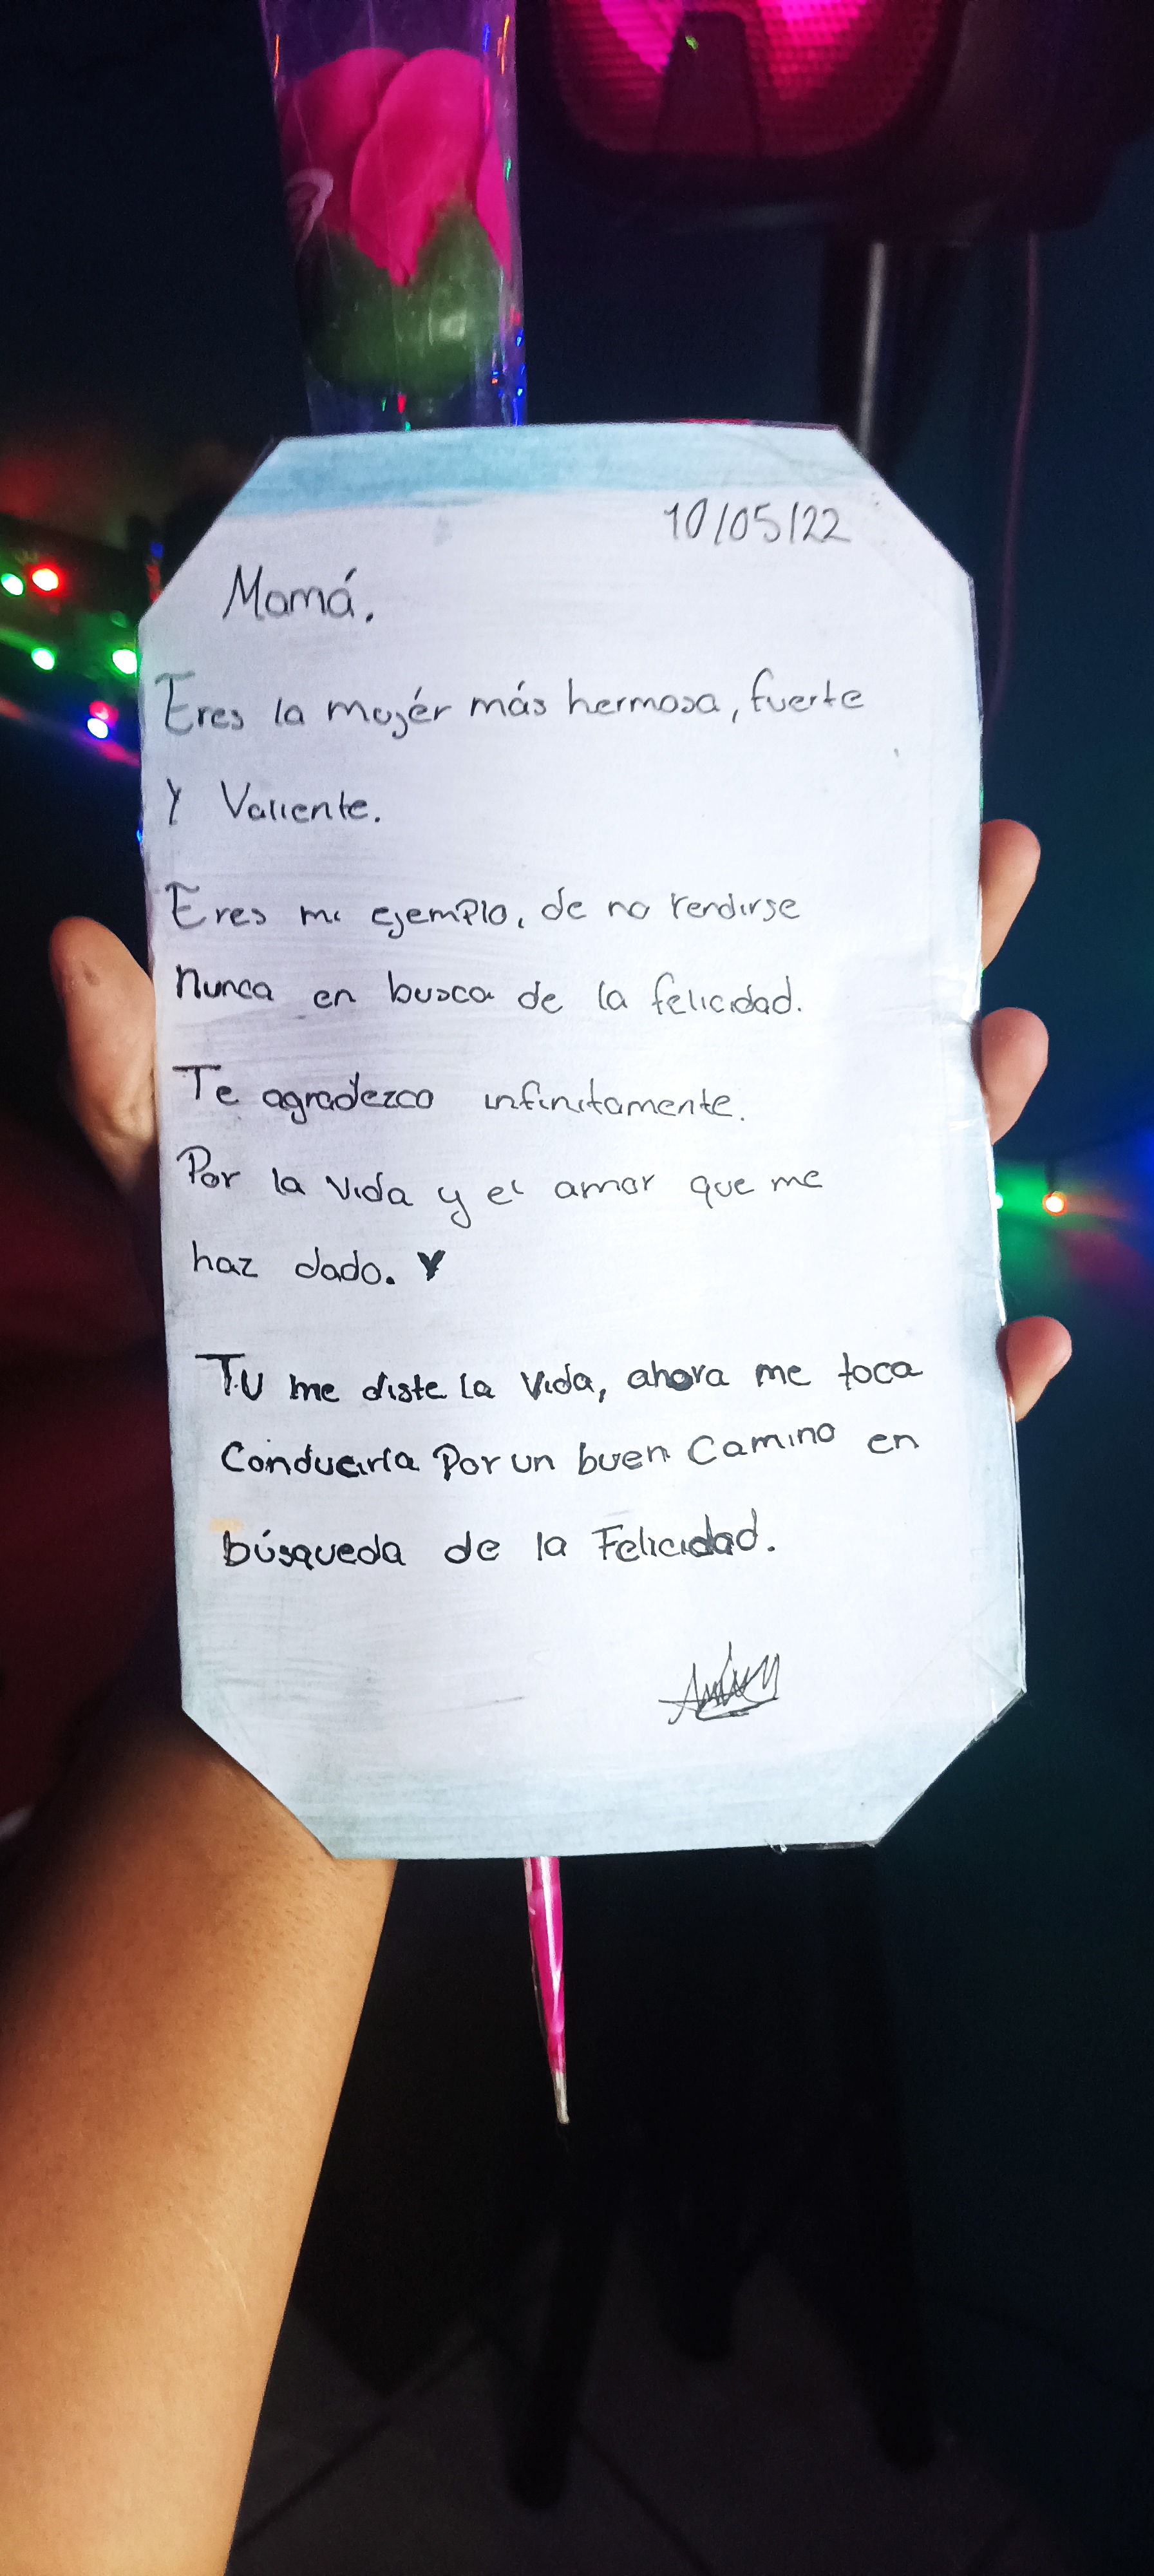 10/05/22
Mamá.
Eres la mujér más hermosa, fuerte
Y Valiente.
Eres mi ejemplo, de no rendirse
nunca en busca de la felicidad.
Te agradezco infinitamente.
Por la vida y el amor que me
haz dado.
TU me diste la vida, ahora me toca
Conducirla Por un buen Camino en
búsqueda de la Felicidad.